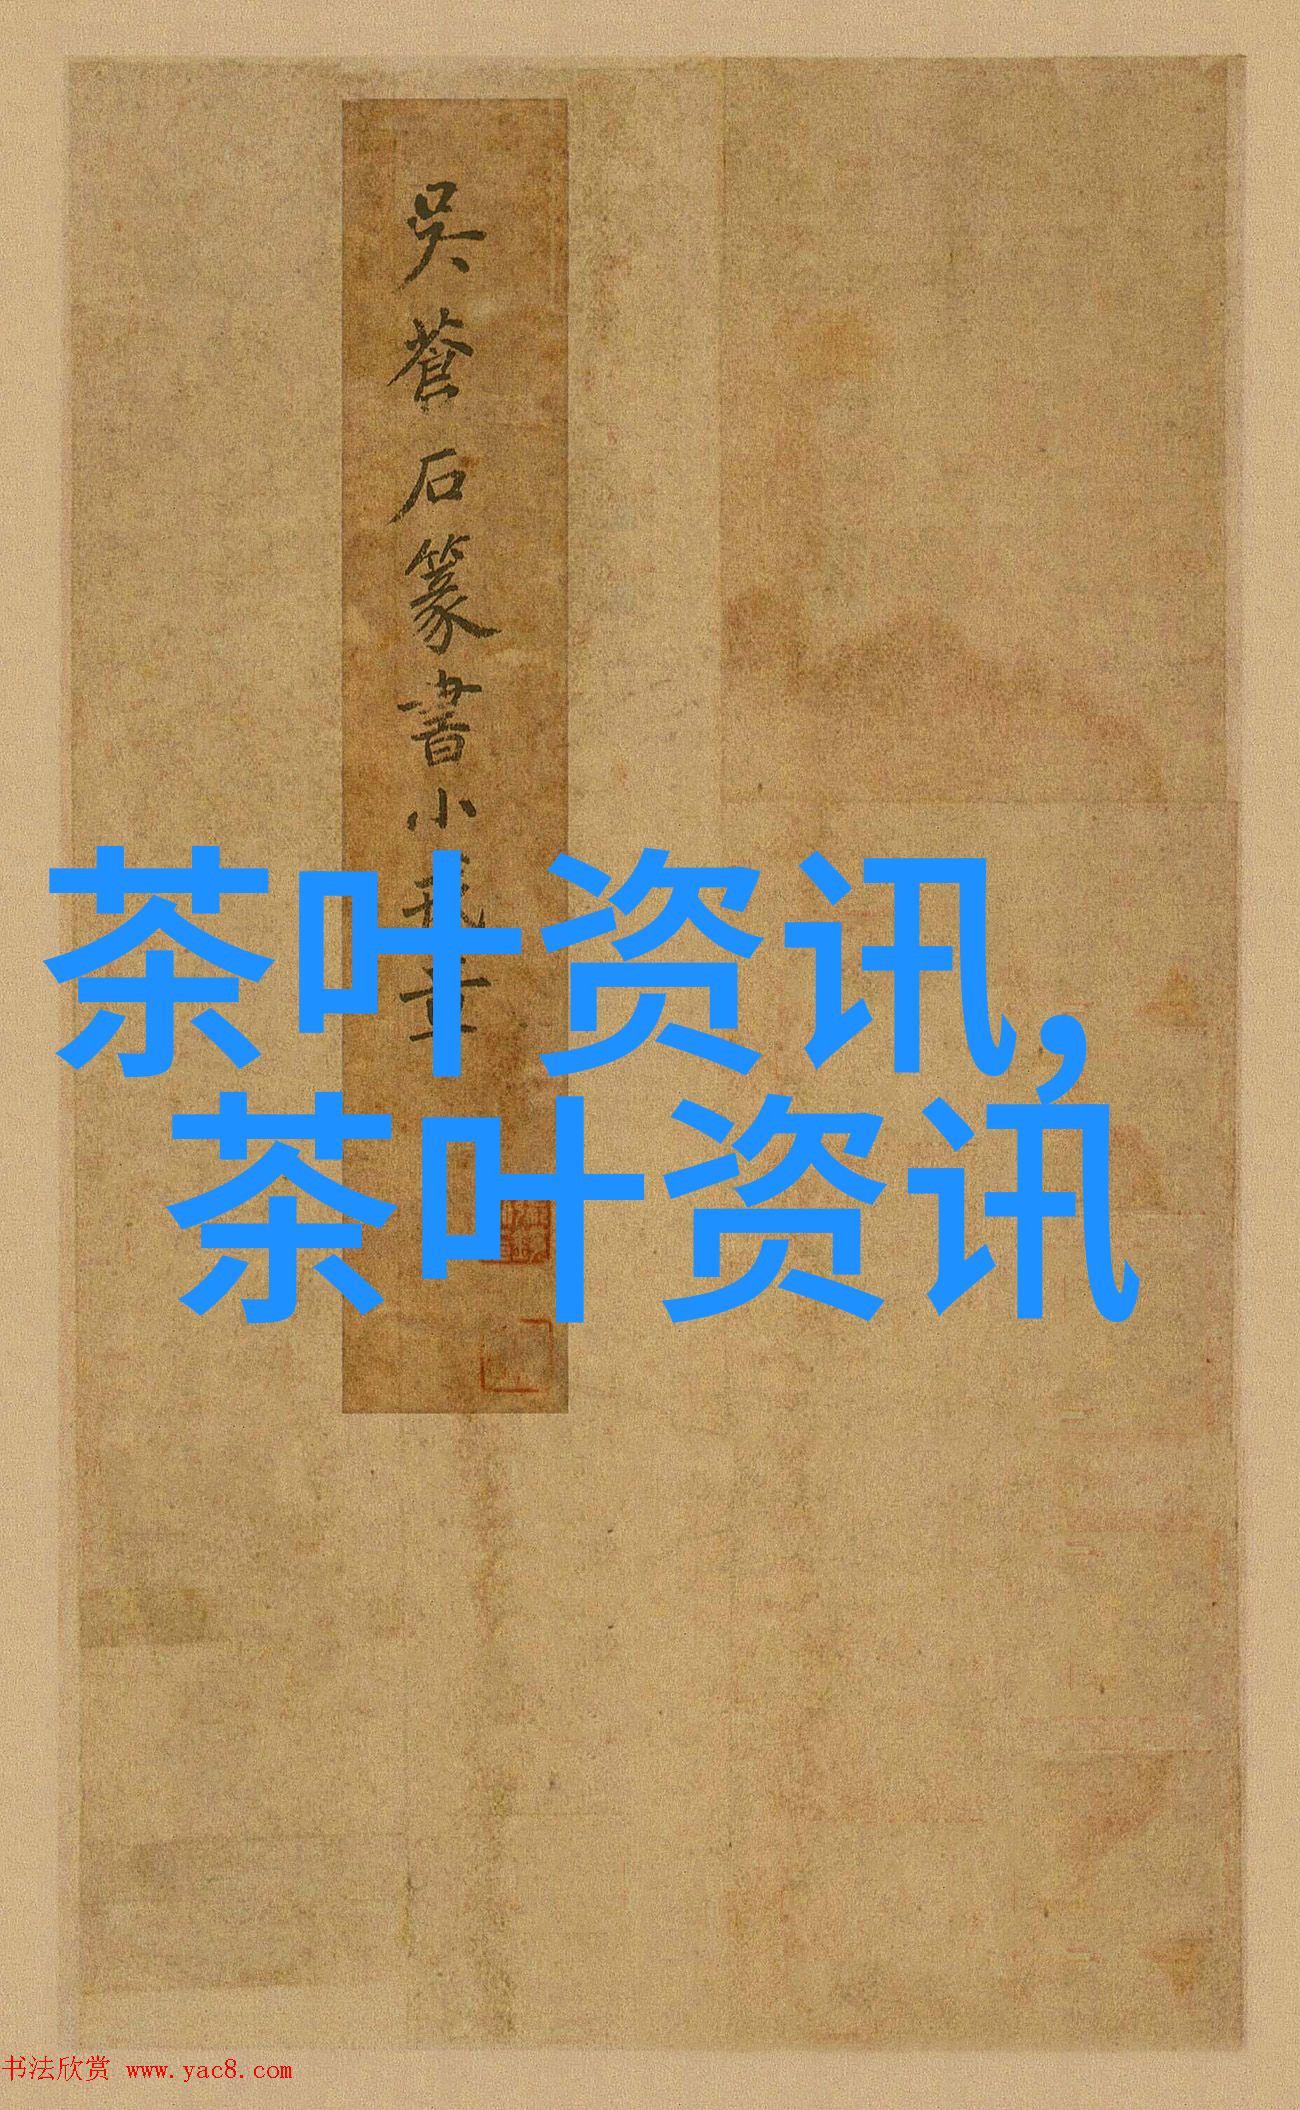 吳蒼石篆書小戎章
茶叶资讯,
茶叶资讯
书法欣赏 www.yac8.com